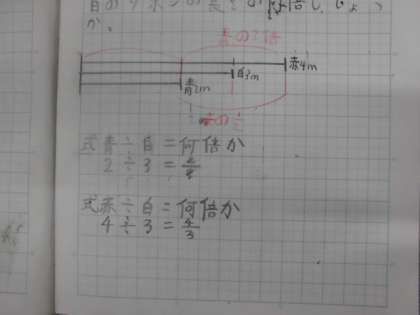 白のリボンの長さの何倍でしょう
か。
青の2倍
赤4m
白3m
青2m
式青÷白=何倍か
2÷3=2/3
式赤÷白=何倍か
4÷3=4/3